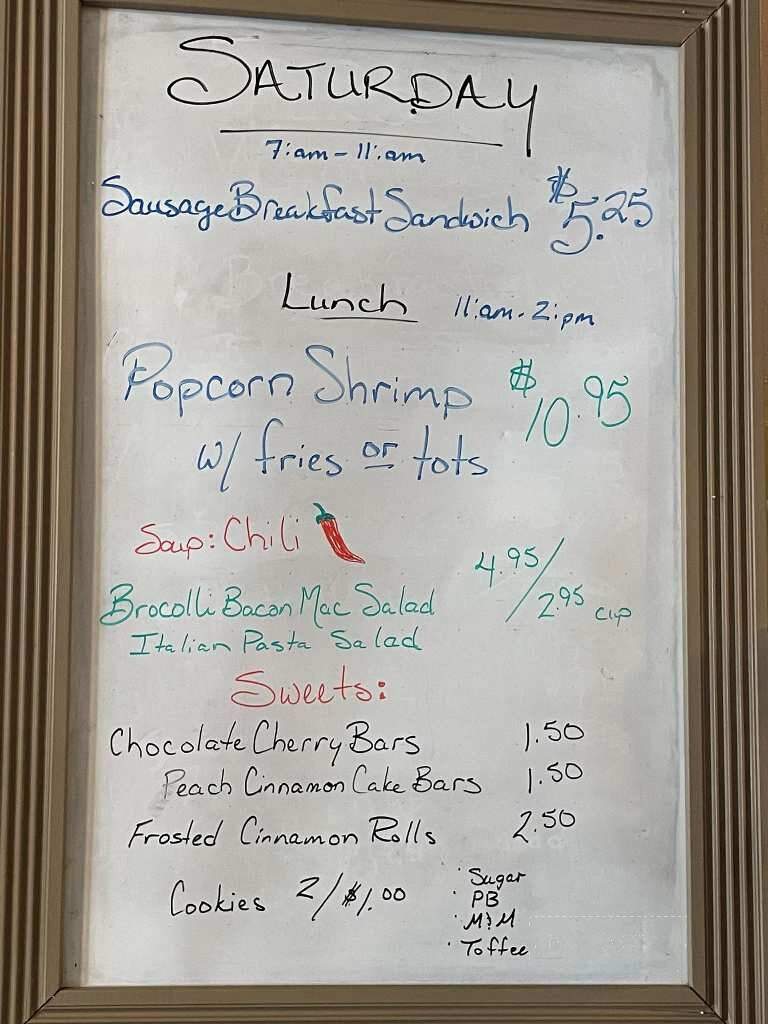 SATURDAY
7:am - 11:am
Sausage Breakfast Sandwich $5.25
Lunch 11:am - 2:pm
Popcorn Shrimp $10.95
w/ fries or tots
Soup: Chili
4.95/2.95 cup
Brocolli Bacon Mac Salad
Italian Pasta Salad
Sweets:
Chocolate Cherry Bars 1.50
Peach Cinnamon Cake Bars 1.50
Frosted Cinnamon Rolls 2.50
Cookies 2/$1.00
· Sugar
· PB
· M&M
· Toffee